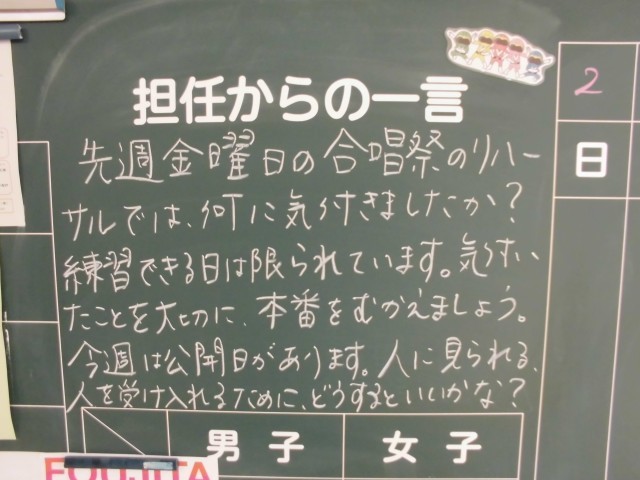 担任からの一言
先週金曜日の合唱祭のリハー
サルでは、何に気付きましたか?
練習できる日は限られています。気付い
たことを大切に、本番をむかえましょう。
今週は公開日があります。人に見られる、
人を受け入れるために、どうするといいかな?
2
日
男子
女子